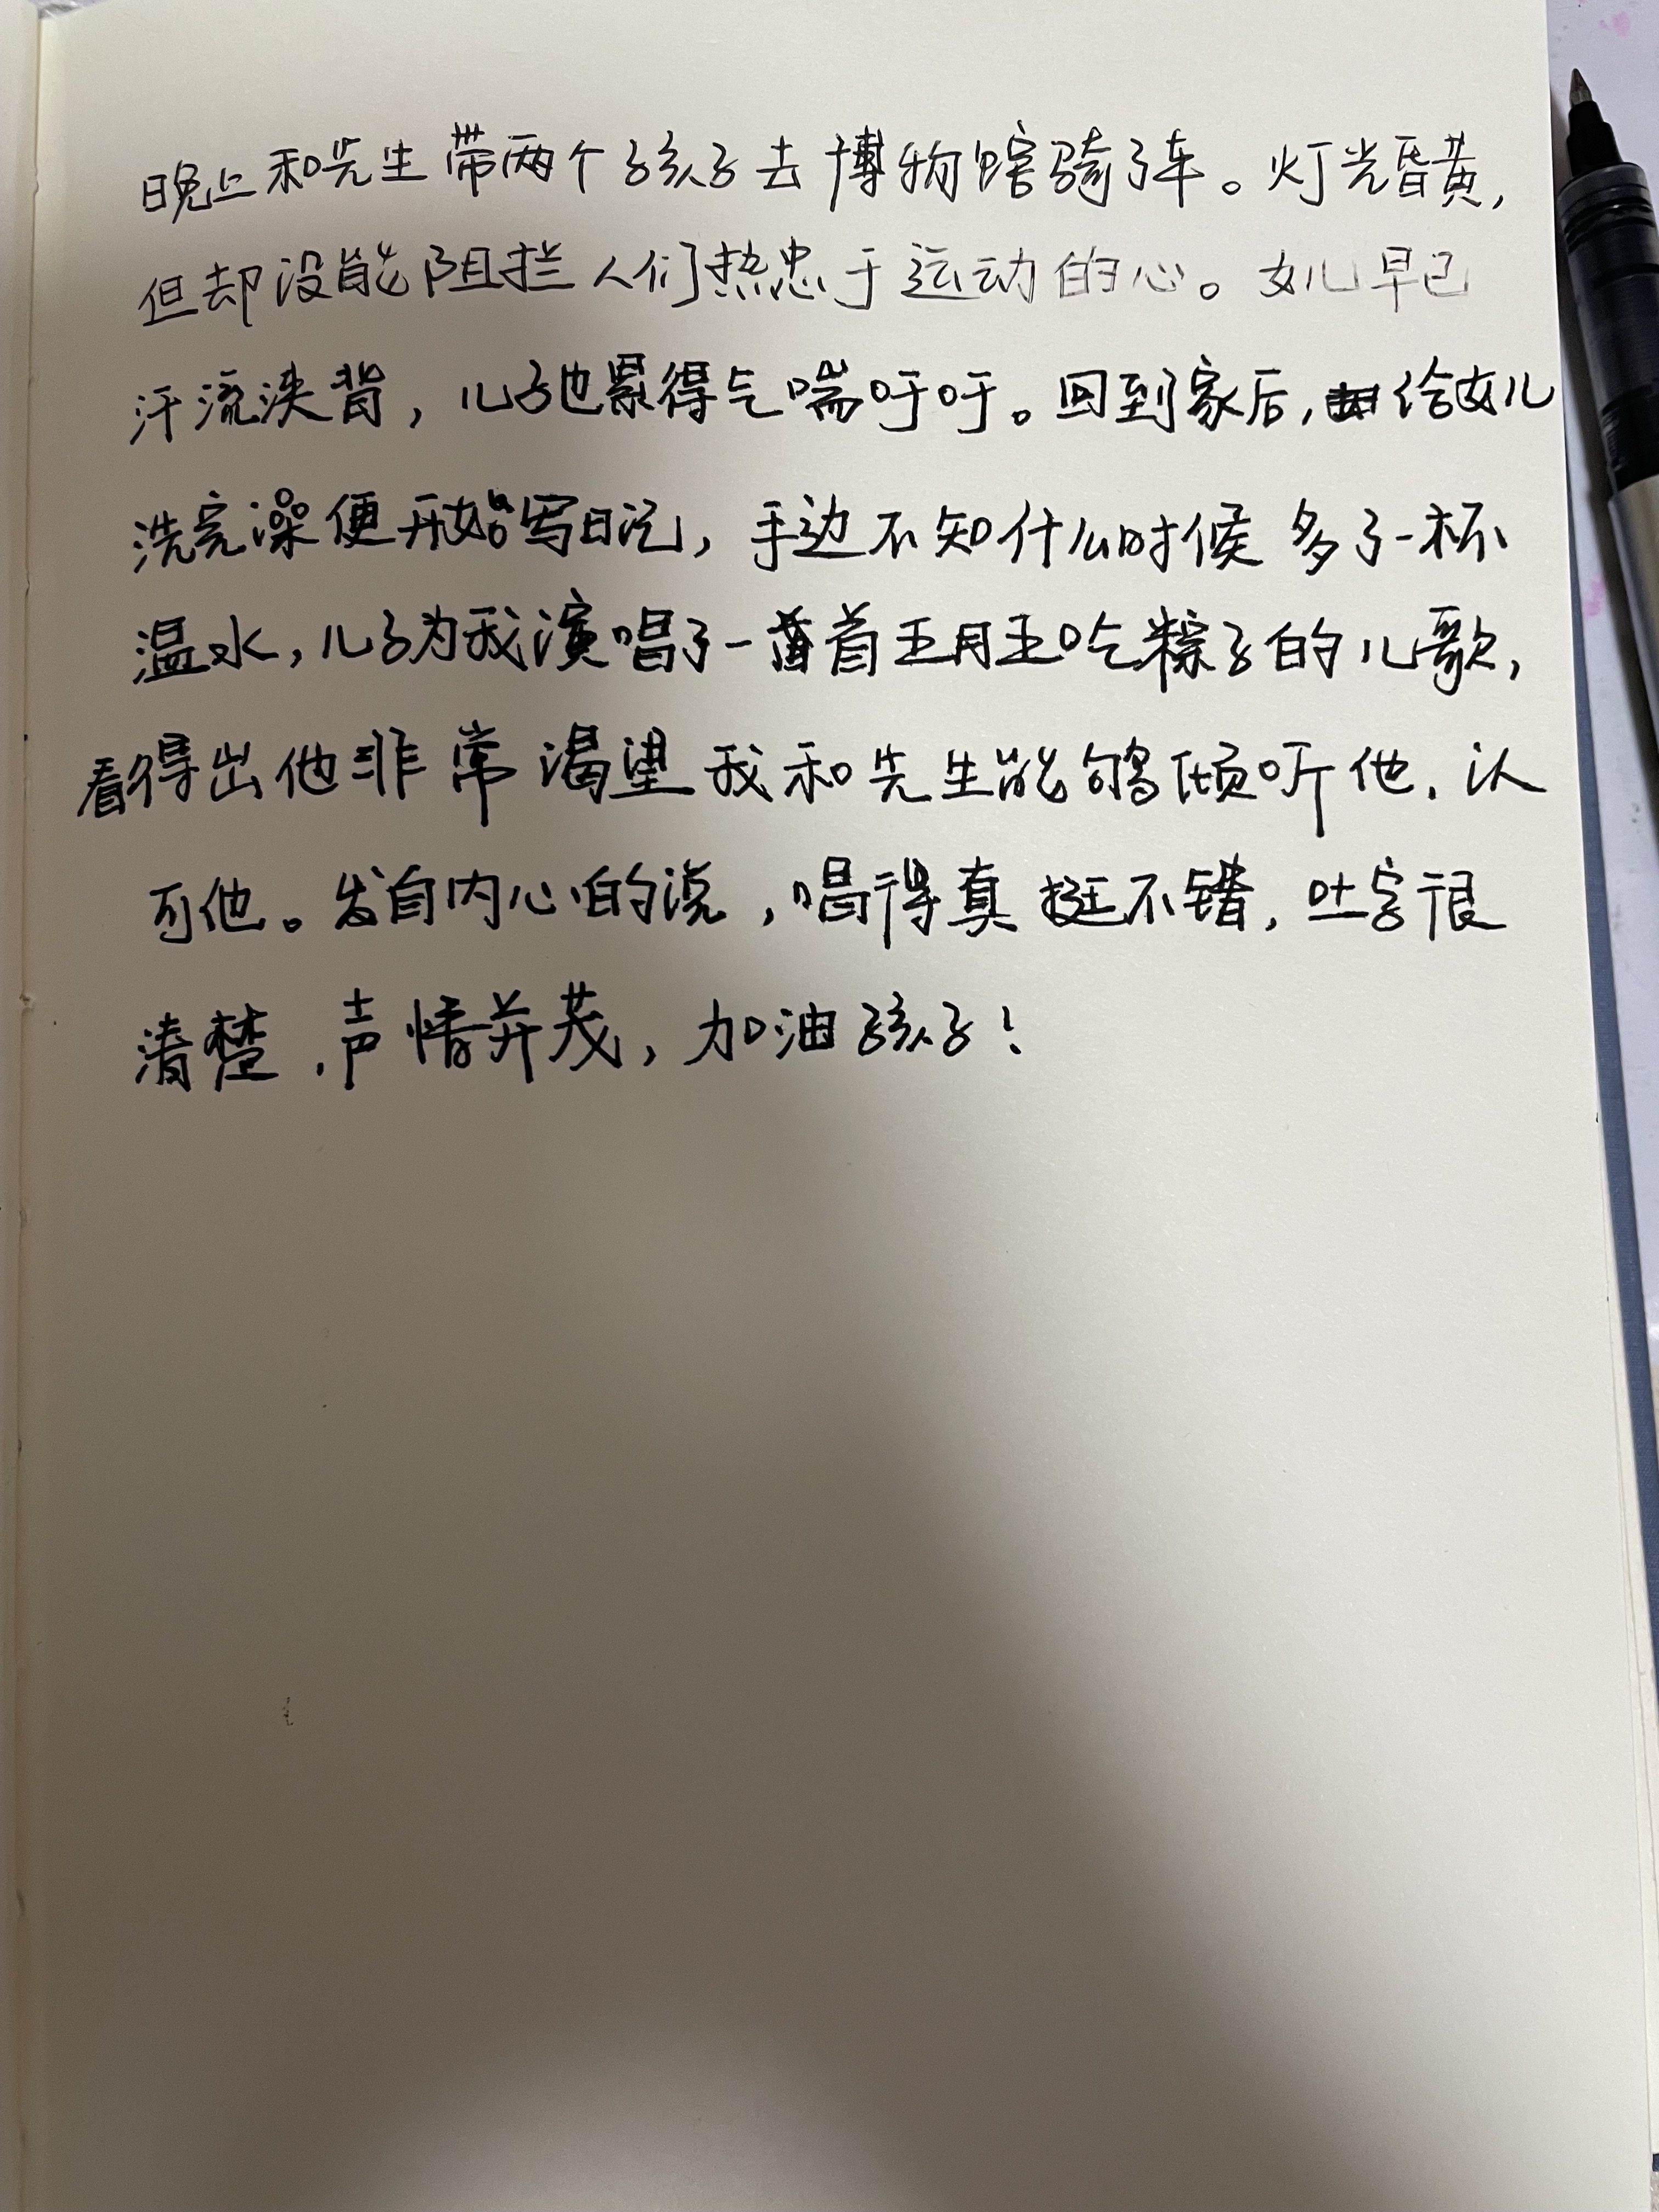 晚上和先生带两个孩子去博物瞎骑了车。灯光昏黄，
但却没能阻拦人们热忠于运动的心。女儿早已
汗流浃背，儿子也累得气喘吁吁。回到家后，给女儿
洗完澡便开始写日记，手边不知什么时候多了一杯
温水，儿子为我演唱了一首五月五吃粽子的儿歌，
看得出他非常渴望我和先生能够倾听他，认
可他。发自内心的说，唱得真挺不错，吐字很
清楚，声情并茂，加油孩子！